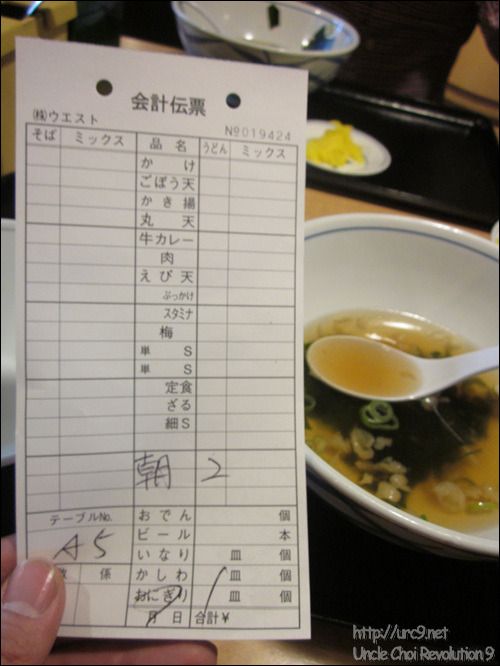 会計伝票
㈱ウエスト
№019424
そば ミックス 品名 うどん ミックス
かけ
ごぼう天
かき揚
丸天
牛カレー
肉
えび天
ぶっかけ
スタミナ
梅
単 S
単 S
定食
ざる
細S
朝 2
テーブルNo. おでん 個
A5 ビール 本
いなり 皿 個
係 かしわ 皿 個
おにぎり 皿 個
月 日 合計¥
http://urc9.net
Uncle Choi Revolution 9